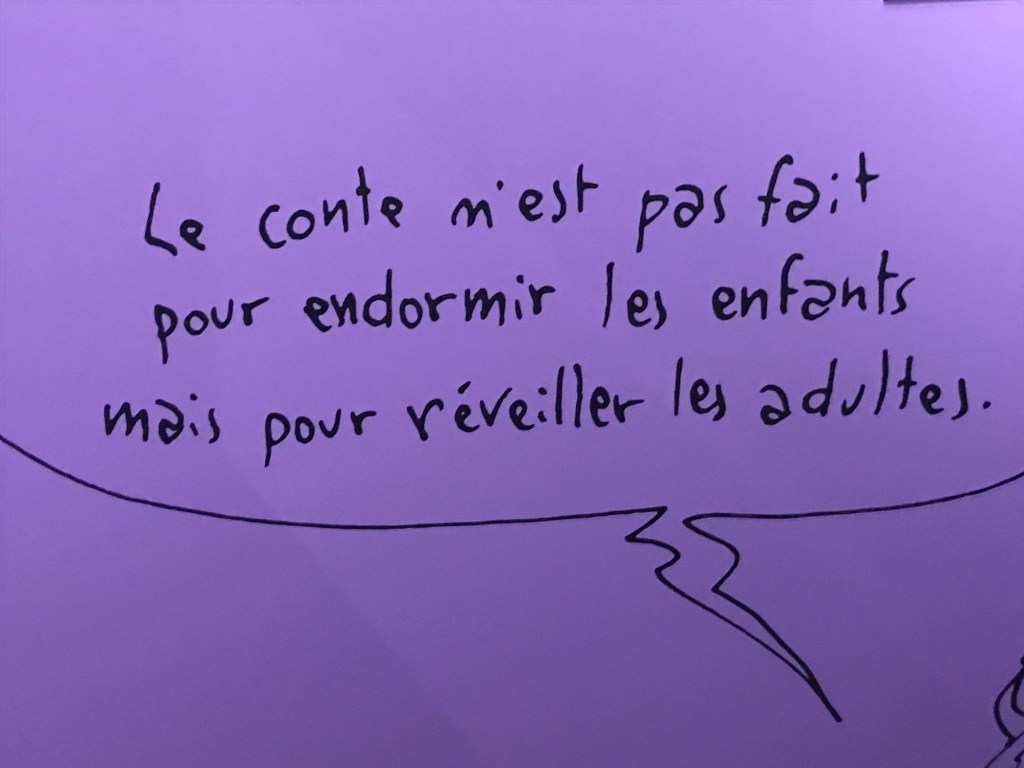 Le conte n'est pas fait
pour endormir les enfants
mais pour réveiller les adultes.